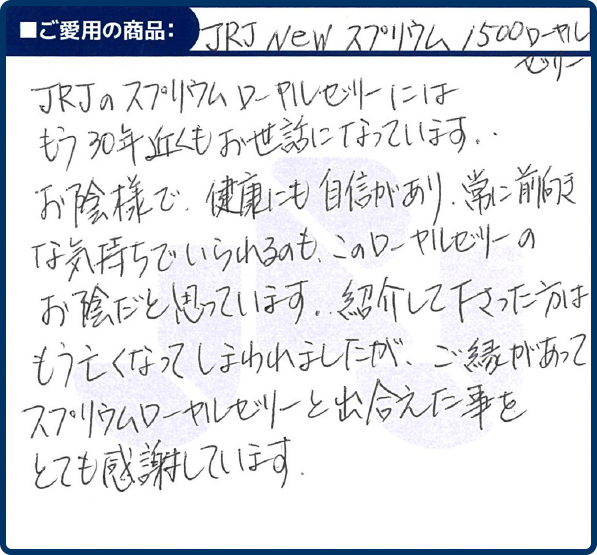 ■ご愛用の商品: JRJ New スプリウム 1500ローヤル
ゼリー
JRJのスプリウムローヤルゼリーには
もう30年近くもお世話になっています。
お陰様で、健康にも自信があり、常に前向き
な気持ちでいられるのも、このローヤルゼリーの
お陰だと思っています。紹介して下さった方は
もう亡くなってしまわれましたが、ご縁があって
スプリウムローヤルゼリーと出合えた事を
とても感謝しています。